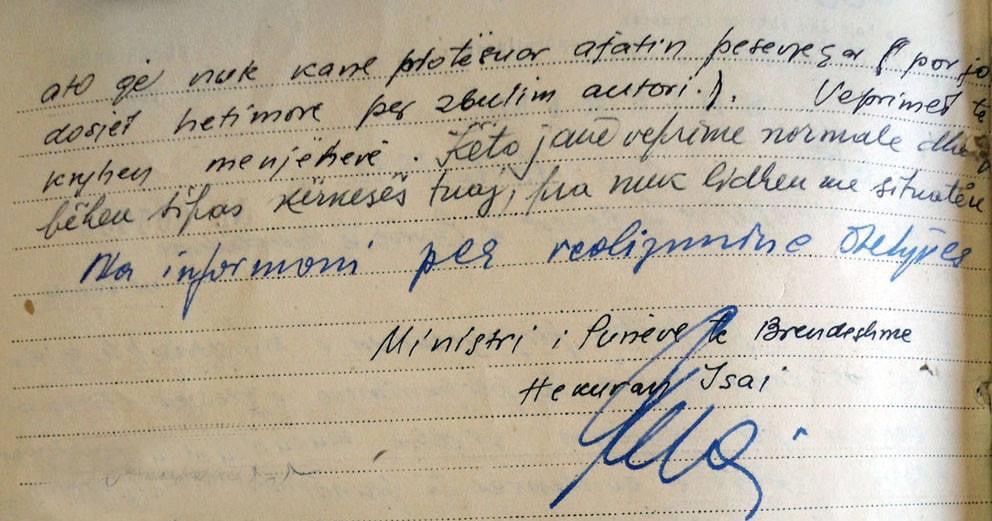 ato që nuk kane plotësuar afatin pesevjeçar (por jo
dosjet hetimore per zbulim autori.). Veprimet të
kryhen menjëherë. Këto janë veprime normale dhe
bëhen sipas kërkesës tuaj, pra nuk lidhen me situatën
Na informoni per realizimine detyrës
Ministri i Punëve të Brendeshme
Hekuran Isai